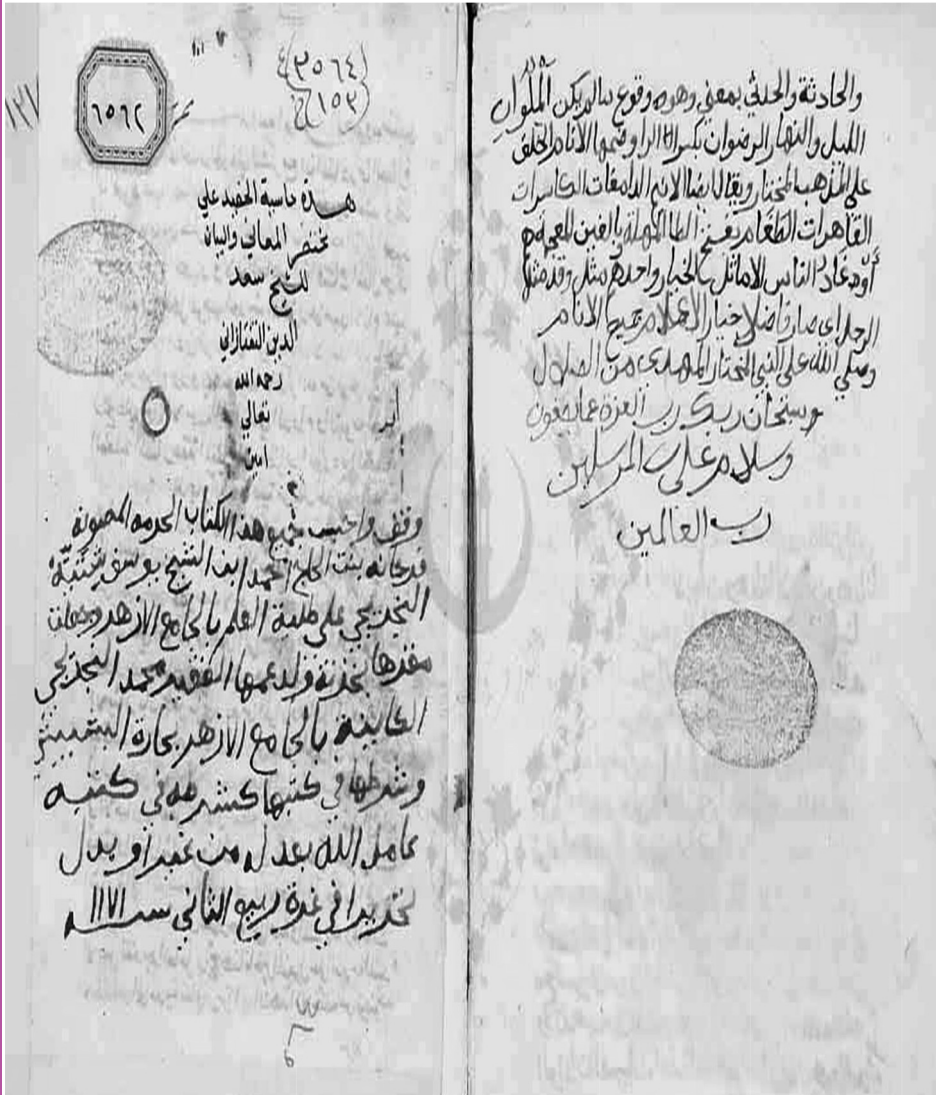 والحادثة والحدثي بمعني وهو وقوع مالم يكن الملوان
الليل والنهار الرضوان بكسر الرا وضمها الانام الخلق
على المذهب المختار ويقال ايضا الانيم الدامغات الكاسرات
القاهرات الطغام بفتح الطا المهملة بالغين المعجمة
أوغاد الناس الاماثل الخيار واحدهم مثل وقد مثل
الرجل اى صار فاضلا خيار الانام
وصلي الله على النبي المختار المهدى من الضلال
وسبحان ربك رب العزة عما يصفون
وسلام على المرسلين
رب العالمين
١٣١
٣٥٦٤
١٥٣
٦٥٦٢
هذه حاشية الحفيد علي
مختصر المعاني والبيان
للشيخ سعد
الدين التفتازاني
رحمه الله
تعالي
امين
وقف واحبس جميع هذا الكتاب الحرمه المصونه
بنت الحاج احمد ابن الشيخ يوسف
على طلبة العلم بالجامع الازهر وجعلت
مقرها بخزنة ولد عمها الفقير محمد
الكاينة بالجامع الازهر بحارة البشبيشي
وشرطها في كتبها كشرطه في كتبه
عامل الله بعدله من غير او بدل
تحريرا في غرة ربيع الثاني سنة ١١٧١